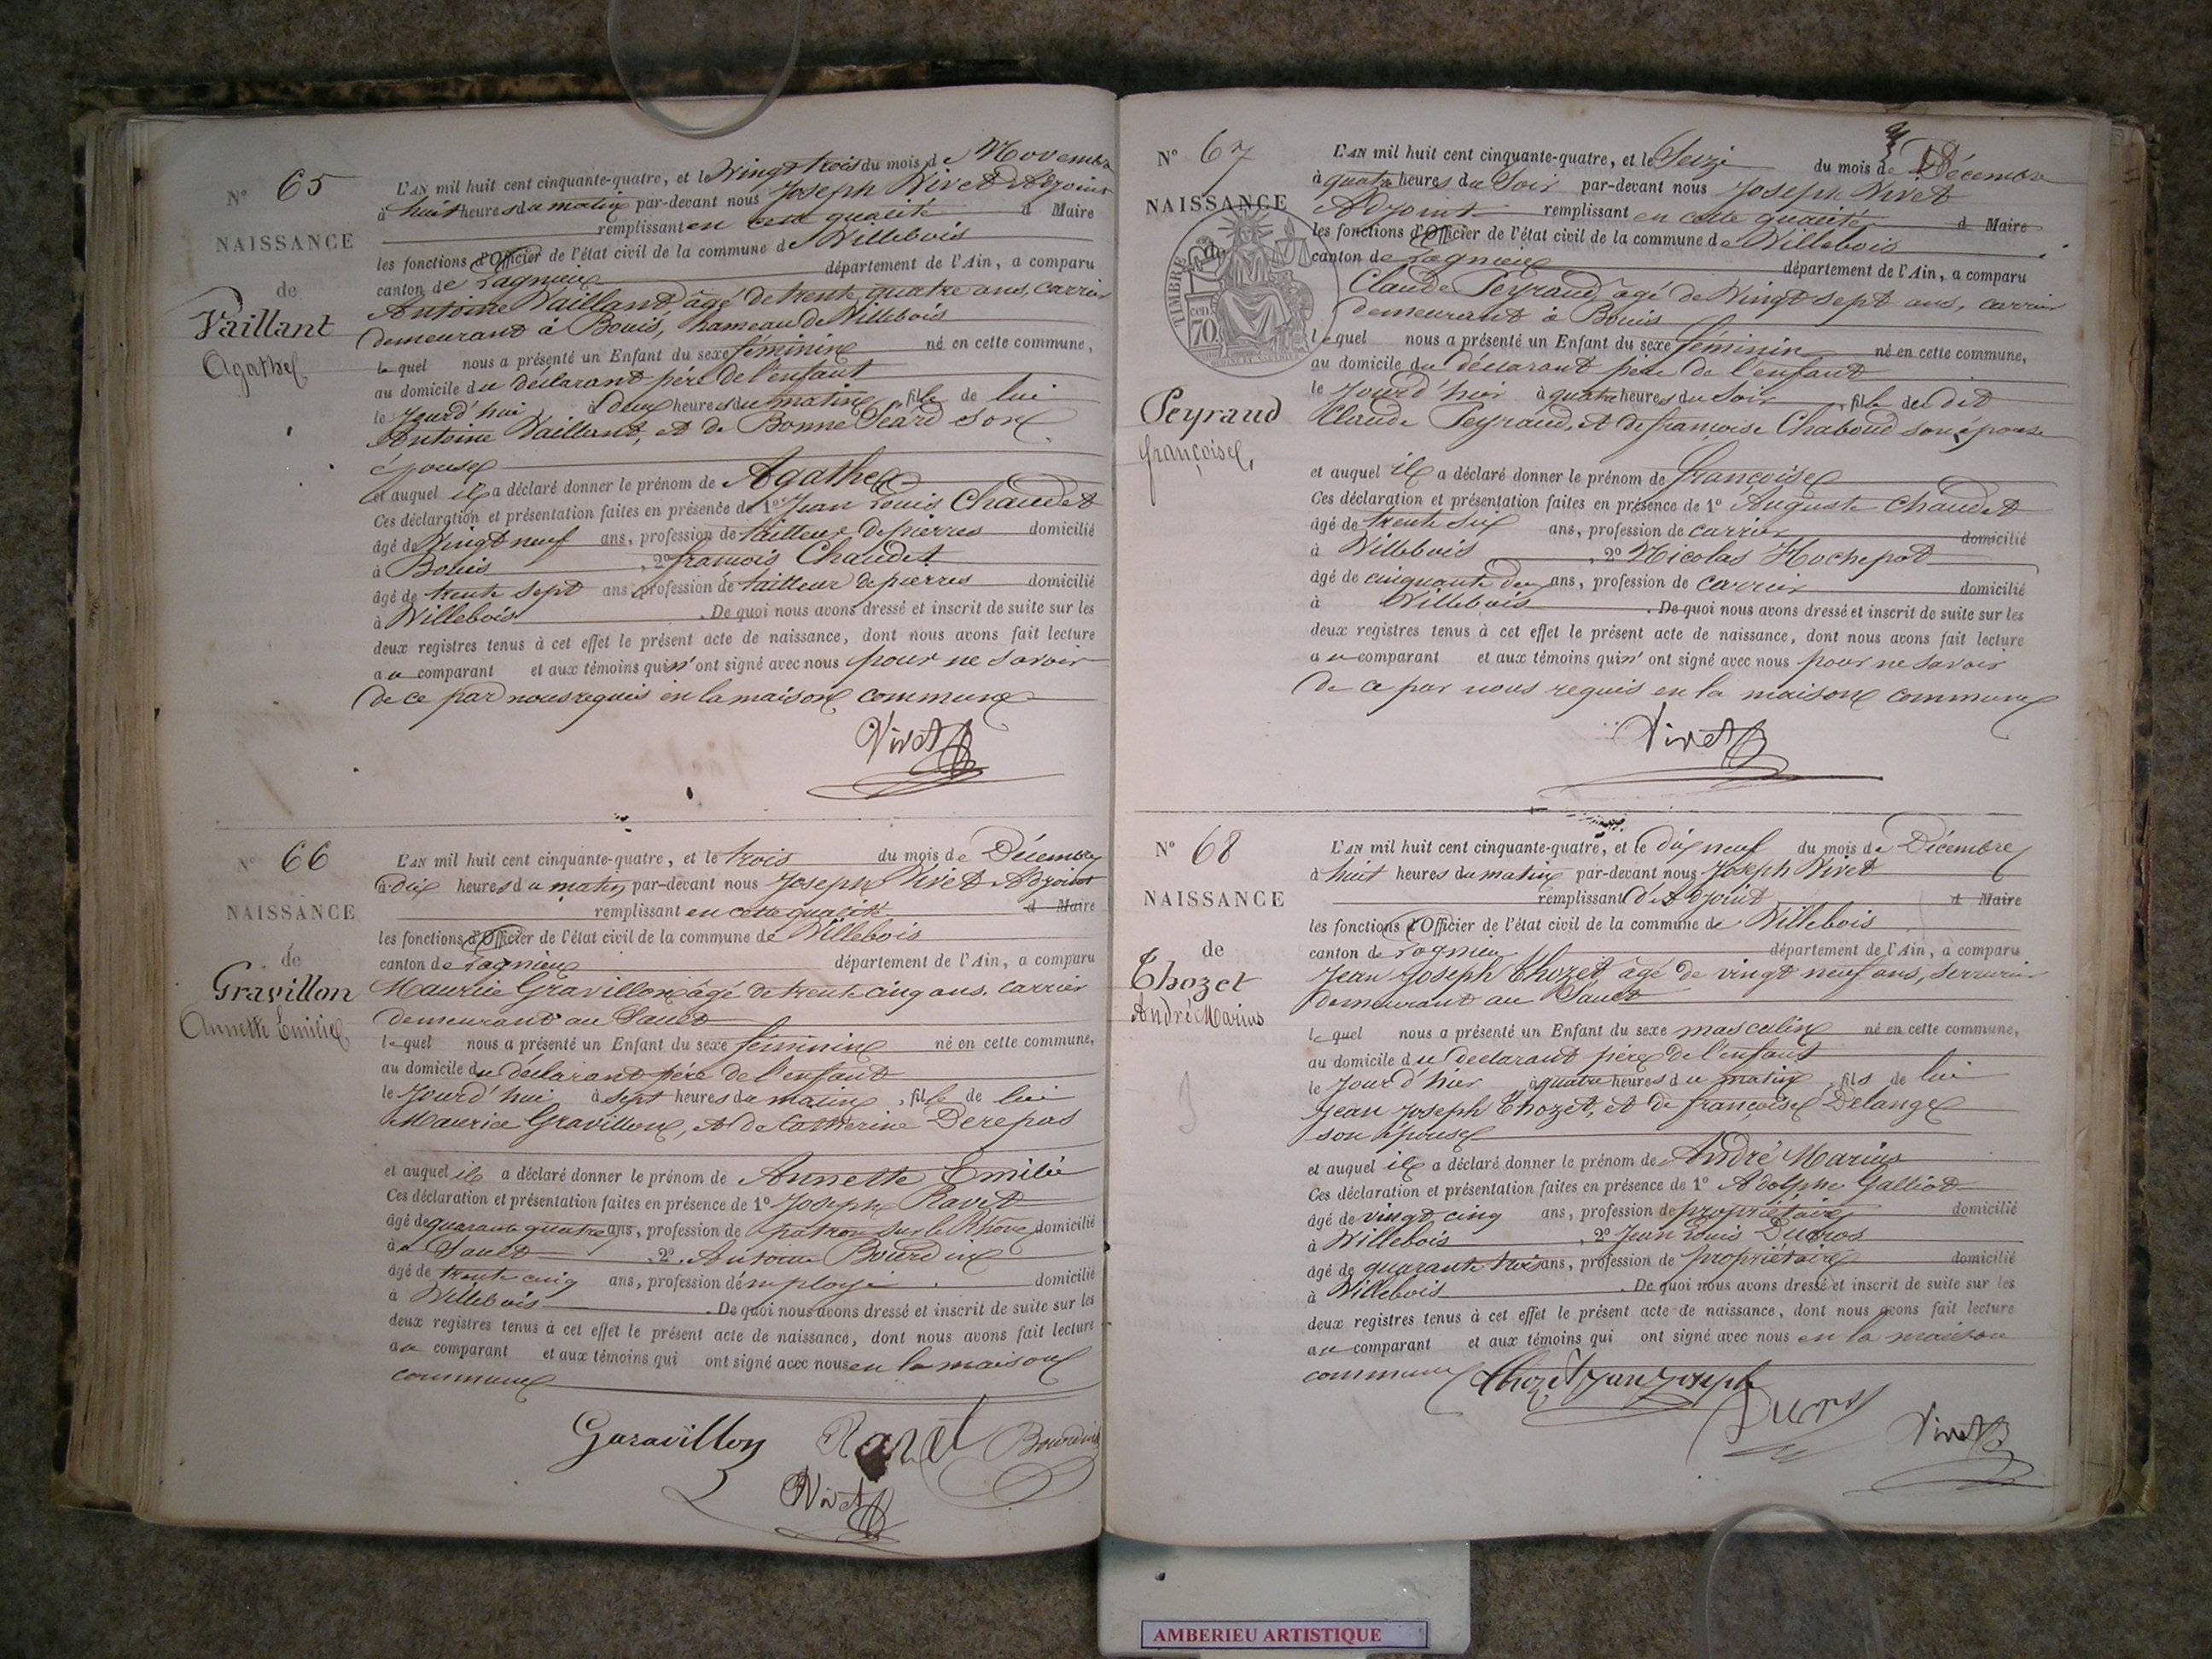 N° 65
NAISSANCE
de
Vaillant
Agathe
L'AN mil huit cent cinquante-quatre, et le Vingt trois du mois de Novembre
à huit heures du matin par-devant nous Joseph Vivet Adjoint
remplissant en cette qualité d Maire
les fonctions d'Officier de l'état civil de la commune de Villebois
canton de Lagnieu département de l'Ain, a comparu
Antoine Vaillant âgé de trente quatre ans, carrier
demeurant à Bouis, hameau de Villebois
le quel nous a présenté un Enfant du sexe féminin né en cette commune,
au domicile du déclarant père de l'enfant
le Jourd'hui à deux heures du matin, fille de lui
Antoine Vaillant, et de Bonne Séard son
épouse
et auquel il a déclaré donner le prénom de Agathe
Ces déclaration et présentation faites en présence de 1° Jean Louis Chaudet
âgé de Vingt neuf ans, profession de tailleur de pierres domicilié
à Bouis, 2° françois Chaudet
âgé de trente sept ans profession de tailleur de pierres domicilié
à Villebois. De quoi nous avons dressé et inscrit de suite sur les
deux registres tenus à cet effet le présent acte de naissance, dont nous avons fait lecture
au comparant et aux témoins qui n'ont signé avec nous pour ne savoir
de ce par nous requis en la maison commune
Vivet
N° 66
NAISSANCE
de
Gravillon
Annette Emilie
L'AN mil huit cent cinquante-quatre, et le trois du mois de Décembre
à dix heures du matin par-devant nous Joseph Vivet Adjoint
remplissant en cette qualité d Maire
les fonctions d'Officier de l'état civil de la commune de Villebois
canton de Lagnieu département de l'Ain, a comparu
Maurice Gravillon âgé de trente cinq ans, carrier
demeurant au Sault
le quel nous a présenté un Enfant du sexe féminin né en cette commune,
au domicile du déclarant père de l'enfant
le Jourd'hui à sept heures du matin, fille de lui
Maurice Gravillon, et de Catherine Derepas
et auquel il a déclaré donner le prénom de Annette Emilie
Ces déclaration et présentation faites en présence de 1° Joseph Ravet
âgé de quarante quatre ans, profession de patron sur le Rhône domicilié
à u Sault, 2° Antoine Bourdin
âgé de trente cinq ans, profession d'employé domicilié
à Villebois. De quoi nous avons dressé et inscrit de suite sur les
deux registres tenus à cet effet le présent acte de naissance, dont nous avons fait lecture
au comparant et aux témoins qui ont signé avec nous en la maison
commune
Garavillon Ravet Bourdin
Vivet
N° 67
NAISSANCE
de
TIMBRE
70 cen
Peyraud
françoise
18
L'AN mil huit cent cinquante-quatre, et le Seize du mois de Décembre
à quatre heures du Soir par-devant nous Joseph Vivet
Adjoint remplissant en cette qualité d Maire
les fonctions d'Officier de l'état civil de la commune de Villebois
canton de Lagnieu département de l'Ain, a comparu
Claude Peyraud, âgé de Vingt sept ans, carrier
demeurant à Bouis
le quel nous a présenté un Enfant du sexe féminin né en cette commune,
au domicile du déclarant père de l'enfant
le Jourd'hier à quatre heures du Soir, fille de dit
Claude Peyraud, et de françoise Chaboud son épouse
et auquel il a déclaré donner le prénom de françoise
Ces déclaration et présentation faites en présence de 1° Auguste Chaudet
âgé de trente six ans, profession de carrier domicilié
à Villebois, 2° Nicolas Hochepot
âgé de cinquante deux ans, profession de carrier domicilié
à Villebois. De quoi nous avons dressé et inscrit de suite sur les
deux registres tenus à cet effet le présent acte de naissance, dont nous avons fait lecture
au comparant et aux témoins qui n'ont signé avec nous pour ne savoir
de ce par nous requis en la maison commune
Vivet
N° 68
NAISSANCE
de
Thozet
André Marius
L'AN mil huit cent cinquante-quatre, et le dix neuf du mois de Décembre
à huit heures du matin par-devant nous Joseph Vivet
remplissant d'Adjoint d Maire
les fonctions d'Officier de l'état civil de la commune de Villebois
canton de Lagnieu département de l'Ain, a comparu
Jean Joseph Thozet, âgé de vingt neuf ans, serrurier
demeurant au Sault
le quel nous a présenté un Enfant du sexe masculin né en cette commune,
au domicile du déclarant père de l'enfant
le Jour d'hier à quatre heures du matin, fils de lui
Jean Joseph Thozet, et de françoise Delange
son épouse
et auquel il a déclaré donner le prénom de André Marius
Ces déclaration et présentation faites en présence de 1° Adolphe Galliot
âgé de vingt cinq ans, profession de propriétaire domicilié
à Villebois, 2° Jean Louis Ducros
âgé de quarante trois ans, profession de propriétaire domicilié
à Villebois. De quoi nous avons dressé et inscrit de suite sur les
deux registres tenus à cet effet le présent acte de naissance, dont nous avons fait lecture
au comparant et aux témoins qui ont signé avec nous en la maison
commune Thozet Jean Joseph
Vivet
AMBERIEU ARTISTIQUE